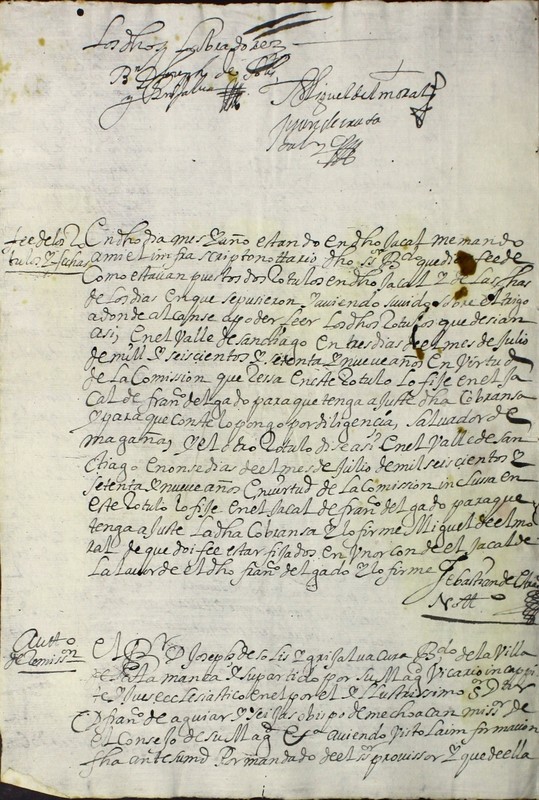 Los dhos Labradores
Br Joseph de Solis
y Grijalva
Miguel del moral
fee de los Ro
tulos y fecha
En dho dia mes y año estando en dho Jacal me mando
a mi el infra scripto nottario dho sr Bdo que diese fee de
Como estavan puestos dos Rotulos en dho Jacal y de las fhas
de los dias en que se pusieron y aviendo suvido sobre el trigo
a donde alcanse a poder leer Los dhos Rotulos que desian
asi, En el Valle de Santiago en tres dias de el mes de Julio
de mill y seiscientos y setenta y nueve años En Virtud
de La Comission que Resa en este Rotulo lo fije en el Ja
cal de franco delgado para que tenga a juste dha Cobransa
y para que conste lo pongo por diligencia, Salvador de
magaña, y el otro Rotulo dise asi En el Valle de San
tiago en onse dias de el mes de Julio de mil seiscientos y
Setenta y nueve años En virtud de La Comission inclussa en
este Rotulo lo fije en el Jacal de franco delgado para que
tenga a juste La dha Cobransa y lo firme Miguel de el mo
ral de que doi fee estar fijados en Un orcon de el Jacal de
La lavor de el dho franco delgado y lo firme Sebastian de
Nott
Autto
de Remission
el Br D Joseph de Solis y grijalva Cura Bdo de la Villa
de Salamanca y su partido por su Magd Vicario in cappi
te y Jues ecclesiastico en el por el Yllustrissimo Sr Dtor
D franco de aguiar y Seijas obispo de mechoacan
el Consejo de su Magd &a aviendo Visto La imformacion
fha ante su md Por mandado de el sr provissor y que de ella